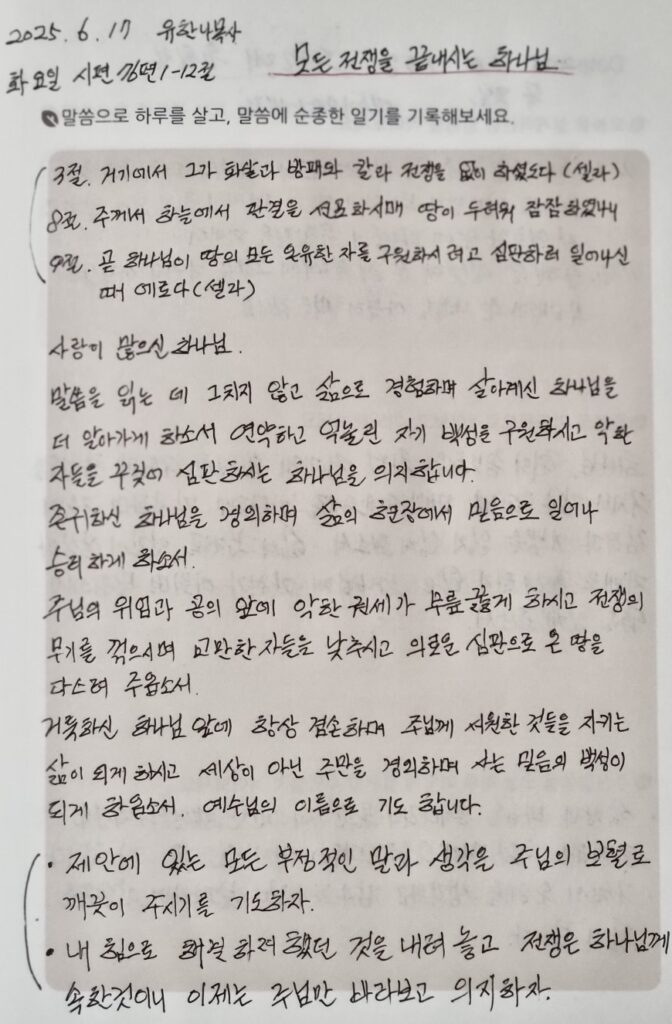 2025. 6. 17 유한나목사
화요일 시편 76편 1-12절 모든 전쟁을 끝내시는 하나님
말씀으로 하루를 살고, 말씀에 순종한 일기를 기록해보세요.
3절. 거기에서 그가 화살과 방패와 칼과 전쟁을 없이 하셨도다 (셀라)
8절. 주께서 하늘에서 판결을 선포하시매 땅이 두려워 잠잠하였나니
9절. 곧 하나님이 땅의 모든 온유한 자를 구원하시려고 심판하러 일어나신
때에로다 (셀라)
사랑이 많으신 하나님.
말씀을 읽는 데 그치지 않고 삶으로 경험하며 살아계신 하나님을
더 알아가게 하소서 연약하고 억눌린 자기 백성을 구원하시고 악한
자들을 꾸짖어 심판하시는 하나님을 의지합니다.
존귀하신 하나님을 경외하며 삶의 현장에서 믿음으로 일어나
승리하게 하소서.
주님의 위엄과 공의 앞에 악한 권세가 무릎 꿇게 하시고 전쟁의
무기를 꺾으시며 교만한 자들을 낮추시고 의로운 심판으로 온 땅을
다스려 주옵소서.
거룩하신 하나님 앞에 항상 겸손하며 주님께 서원한 것들을 지키는
삶이 되게 하시고 세상이 아닌 주만을 경외하며 사는 믿음의 백성이
되게 하옵소서. 예수님의 이름으로 기도 합니다.
• 제안에 있는 모든 부정적인 말과 생각을 주님의 보혈로
깨끗이 주시기를 기도하자.
• 내 힘으로 해결 하려 했던 것을 내려 놓고 전쟁은 하나님께
속한것이니 이제는 주님만 바라보고 의지하자.